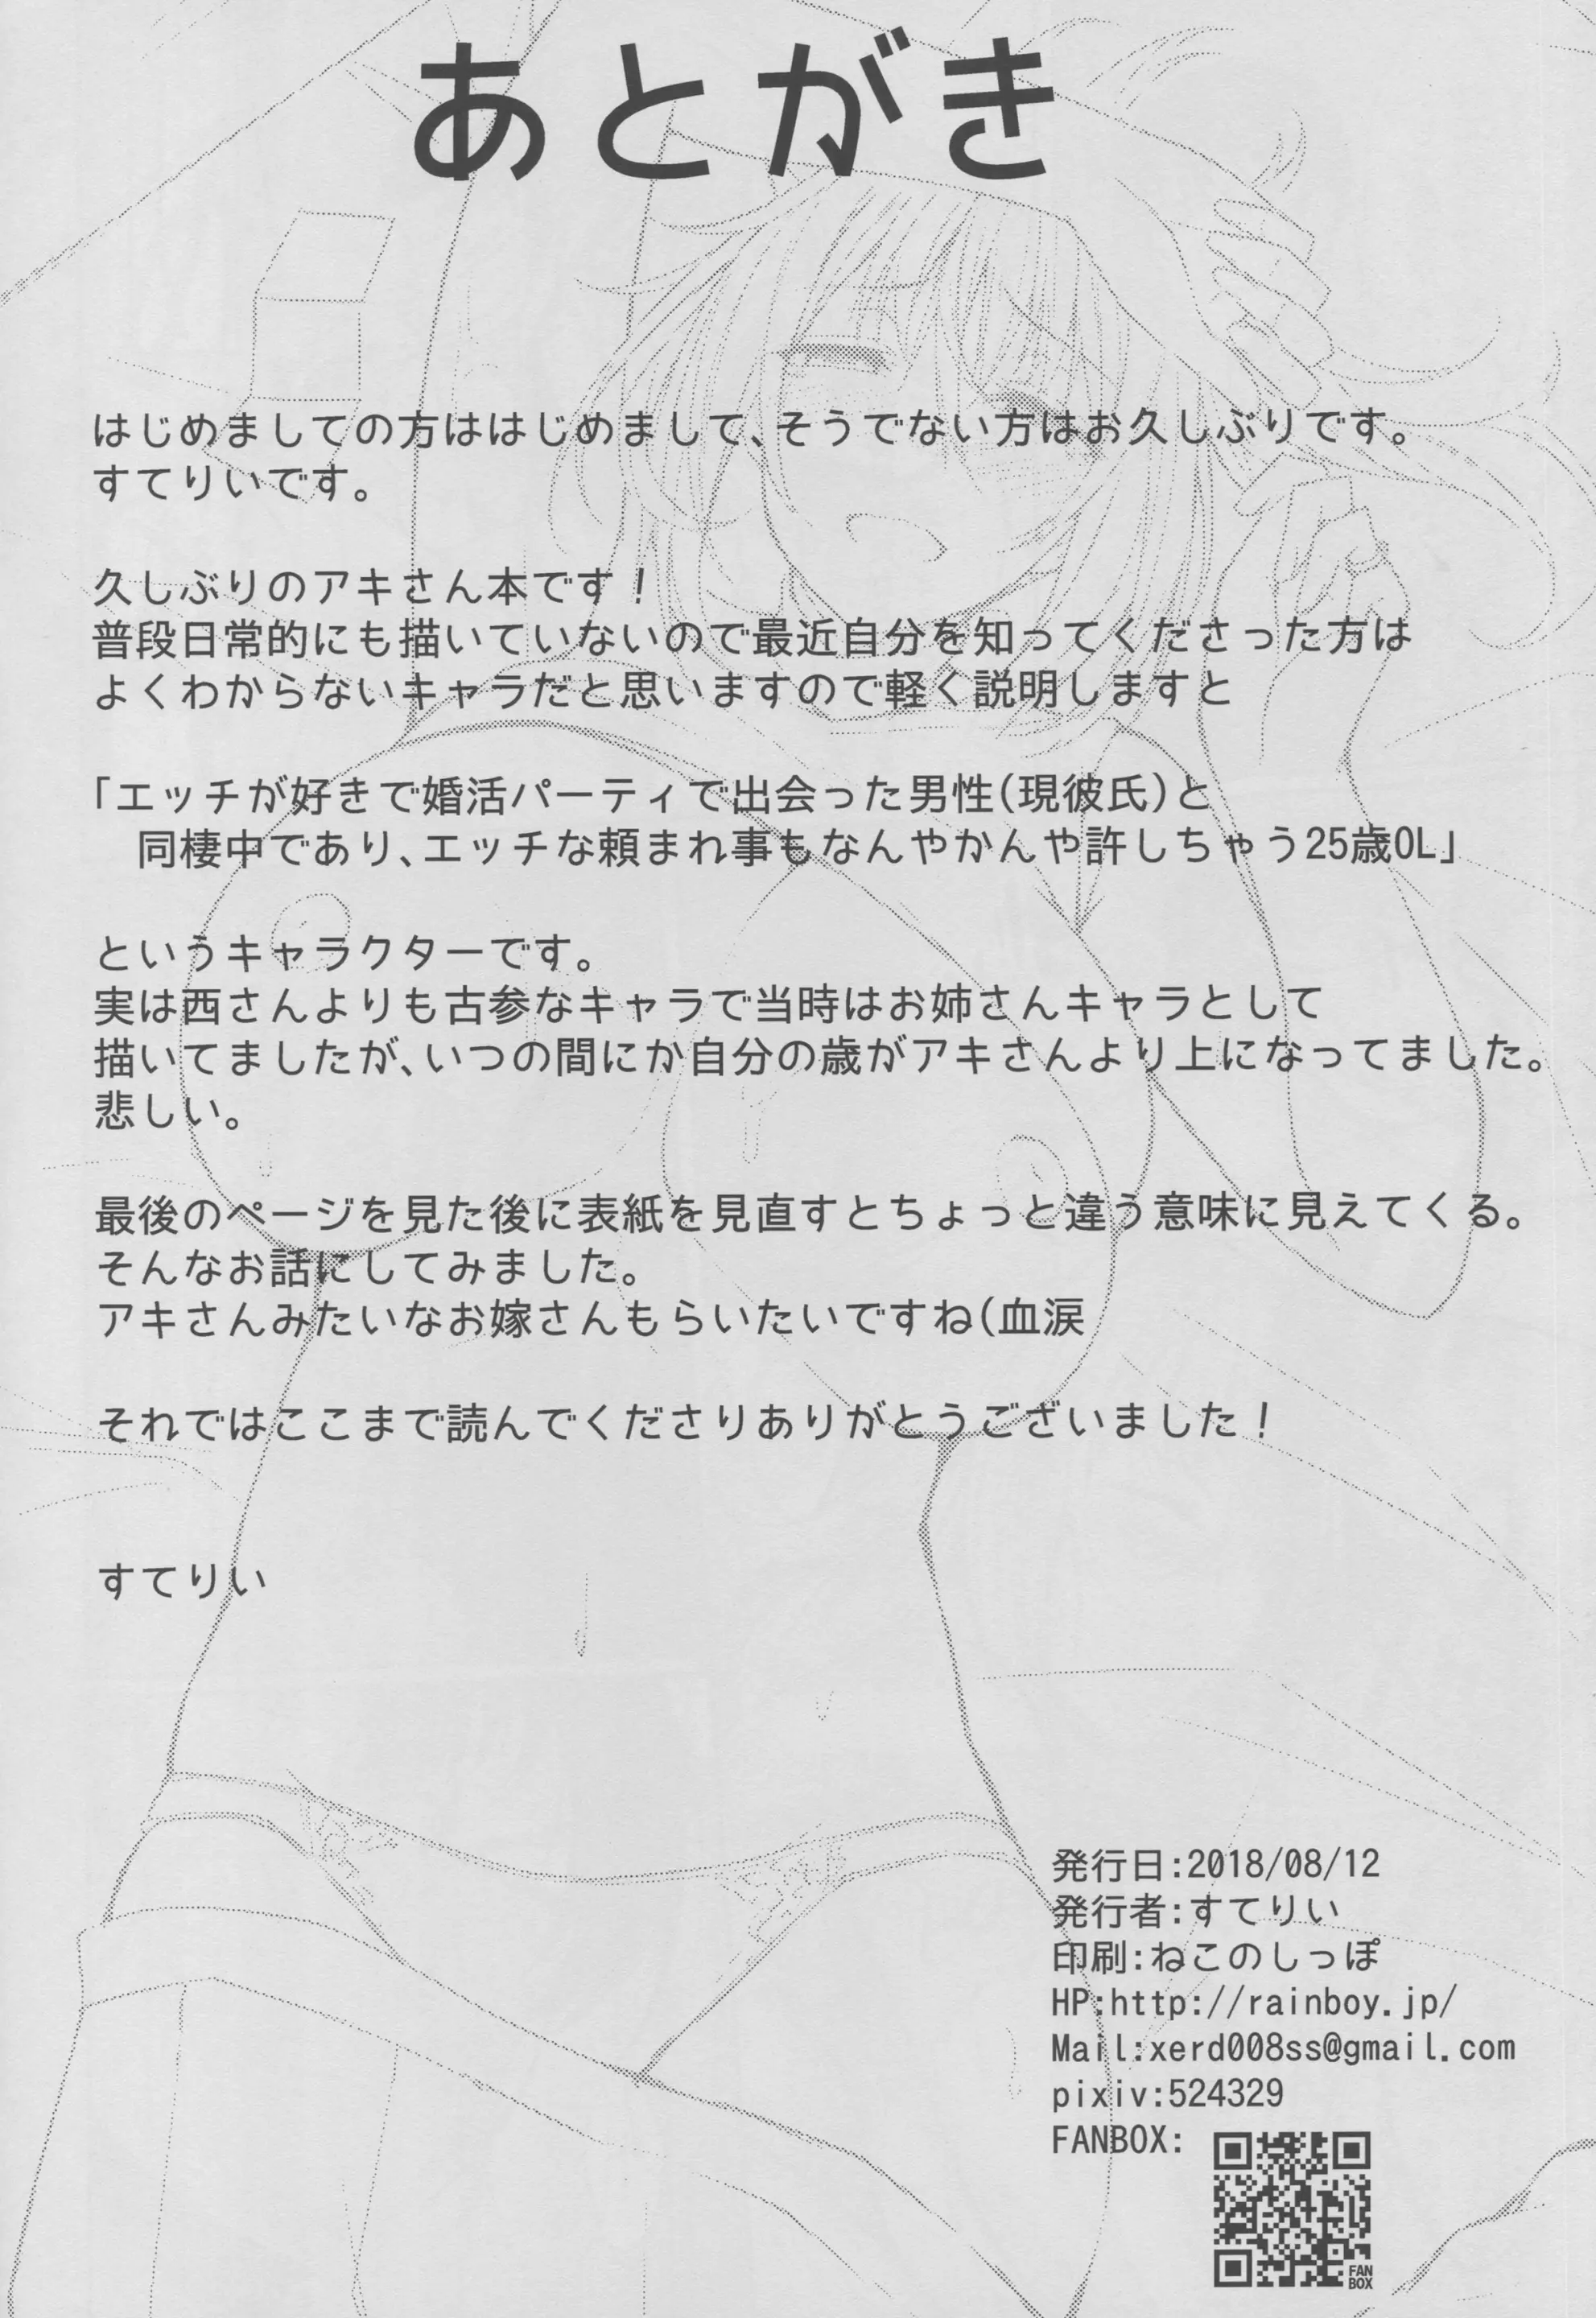 あとがき
はじめましての方ははじめまして、そうでない方はお久しぶりです。
すてりいです。
久しぶりのアキさん本です！
普段日常的にも描いていないので最近自分を知ってくださった方は
よくわからないキャラだと思いますので軽く説明しますと
「エッチが好きで婚活パーティで出会った男性(現彼氏)と
同棲中であり、エッチな頼まれ事もなんやかんや許しちゃう25歳OL」
というキャラクターです。
実は西さんよりも古参なキャラで当時はお姉さんキャラとして
描いてましたが、いつの間にか自分の歳がアキさんより上になってました。
悲しい。
最後のページを見た後に表紙を見直すとちょっと違う意味に見えてくる。
そんなお話にしてみました。
アキさんみたいなお嫁さんもらいたいですね(血涙
それではここまで読んでくださりありがとうございました！
すてりい
発行日:2018/08/12
発行者:すてりい
印刷:ねこのしっぽ
HP:http://rainboy.jp/
Mail:xerd008ss@gmail.com
pixiv:524329
FANBOX:
FAN
BOX